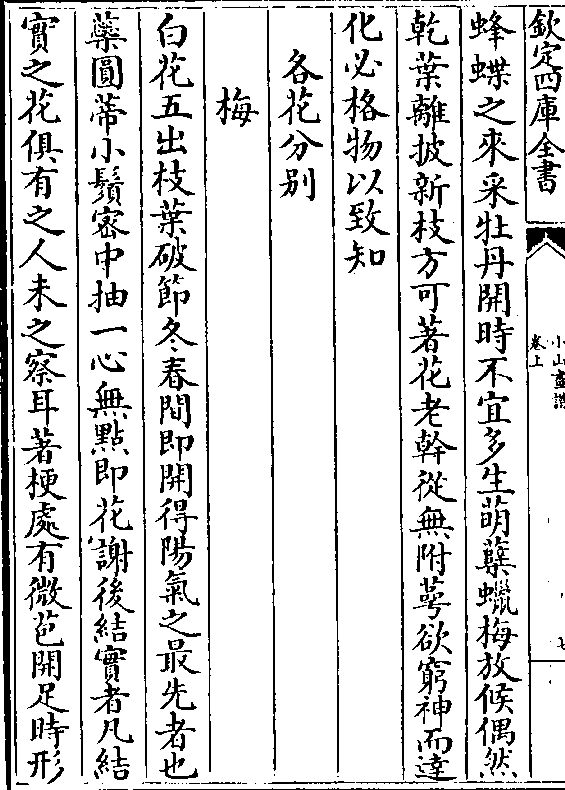 欽定四庫全書
小山畫譜
卷上
七
蜂蝶之來采牡丹開時不宜多生萌蘖蠟梅放候偶然
乾葉離披新枝方可著花老幹從無附萼欲窮神而達
化必格物以致知
各花分别
梅
白花五出枝葉破節冬春間即開得陽氣之最先者也
蘂圓蒂小鬚密中抽一心無點即花謝後結實者凡結
實之花俱有之人未之察耳著梗處有微苞開足時形